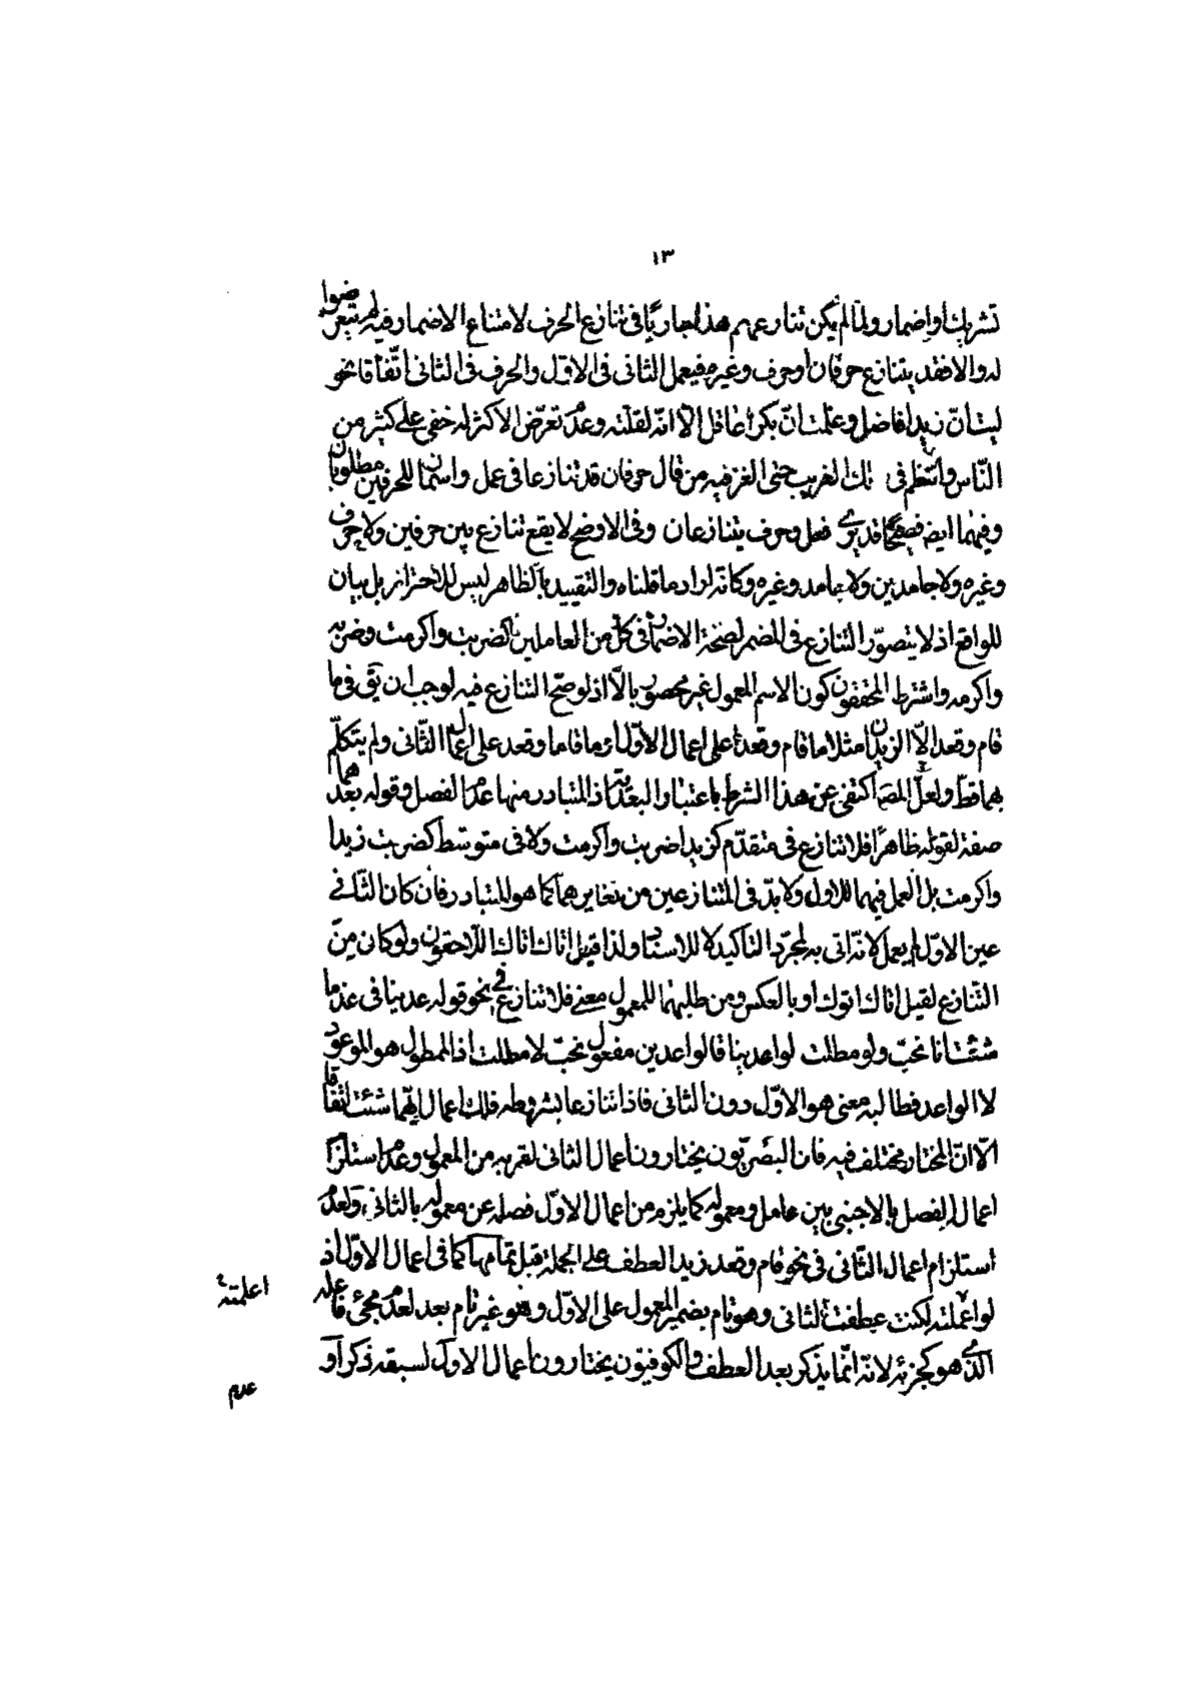 ١٣
تشريك او اضمار ولما لم يكن تنازعهم هذا جاريا فى تنازع الحرف لامتناع الاضمار فيه لم يتعرضوا
له والا فقد يتنازع حرفان او حرف وغيره فيعمل الثانى فى الاول والحرف فى الثانى اتفاقا نحو
ليت ان زيدا فاضل وعلمت ان بكرا عاقل الا انه لقلته وعدم تعرض الاكثر له خفى على كثير من
النّاس وانتظم فى تلك الغريب حتى الغز فيه من قال حرفان قد تنازعا فى عمل واسمان للحرفين مطلوبان
وفيهما ايضه فصيحا قد يرى فعل وحرف يتنازعان وفى الاوضح لا يقع تنازع بين حرفين ولا حرف
وغيره ولا جامدين ولا جامد وغيره وكانه اراد ما قلناه والتقييد بالظاهر ليس للاحتراز بل بيان
للواقع اذ لا يتصوّر التنازع فى المضمر لصحة الاضمار فى كل من العاملين كضربت واكرمت وضربه
واكرمه واشترط المحققون كون الاسم المعمول غير محصور بالّا اذ لو صحّ التنازع فيه لوجب ان يق فى ما
قام وقعد الّا الزيدان مثلا ما قام وقعدا على اعمال الاوّل او ما قاما وقعد على اعمال الثّانى ولم يتكلّم
بهما قط ولعلّ المصـ اكتفى عن هذا الشرط باعتبار البعديّة اذ المتبادر منها عدم الفصل وقوله بعدهما
صفة لقوله ظاهرا فلا تنازع فى متقدّم كزيدا ضربت واكرمت ولا فى متوسّط كضربت زيدا
واكرمت بل العمل فيهما للاول ولا بدّ فى المتنازعين من تغايرهما كما هو المتبادر فان كان الثّانى
عين الاوّل لم يعمل لانه اتى به لمجرّد التأكيد لا للاسناد ولذا قيل اتاك اتاك اللّاحقون ولو كان من
التّنازع لقيل اتاك اتوك او بالعكس ومن طلبهما للمعمول معنى فلا تنازع فى نحو قوله عدينا فى غد ما
شئت انا نحبّ ولو مطلت لواعدينا فالواعدين مفعول نحبّ لا مطلت اذ الممطول هو الموعود
لا الواعد فطالبه معنى هو الاوّل دون الثانى فاذا تنازعا بشروطه فلك اعمال ايّهما شئت اتّفاقا
الّا انّ المختار مختلف فيه فان البصريّون يختارون اعمال الثانى لقربه من المعمول وعدم استلزام
اعماله الفصل بالاجنبى بين عامل ومعموله كما يلزم من اعمال الاوّل فصله عن معموله بالثانى ولعدم
استلزام اعمال الثّانى فى نحو قام وقعد زيد العطف على الجملة قبل تمامها كما فى اعمال الاوّل اذ
لو اعملته لكنت عطفت الثانى وهو تام بضمير المعمول على الاوّل وهو غير تام بعد لعدم مجئ فاعله
الذى هو كجزئه لانه انّما يذكر بعد العطف والكوفيّون يختارون اعمال الاوّل لسبقه ذكرا و
اعلمته
عدم